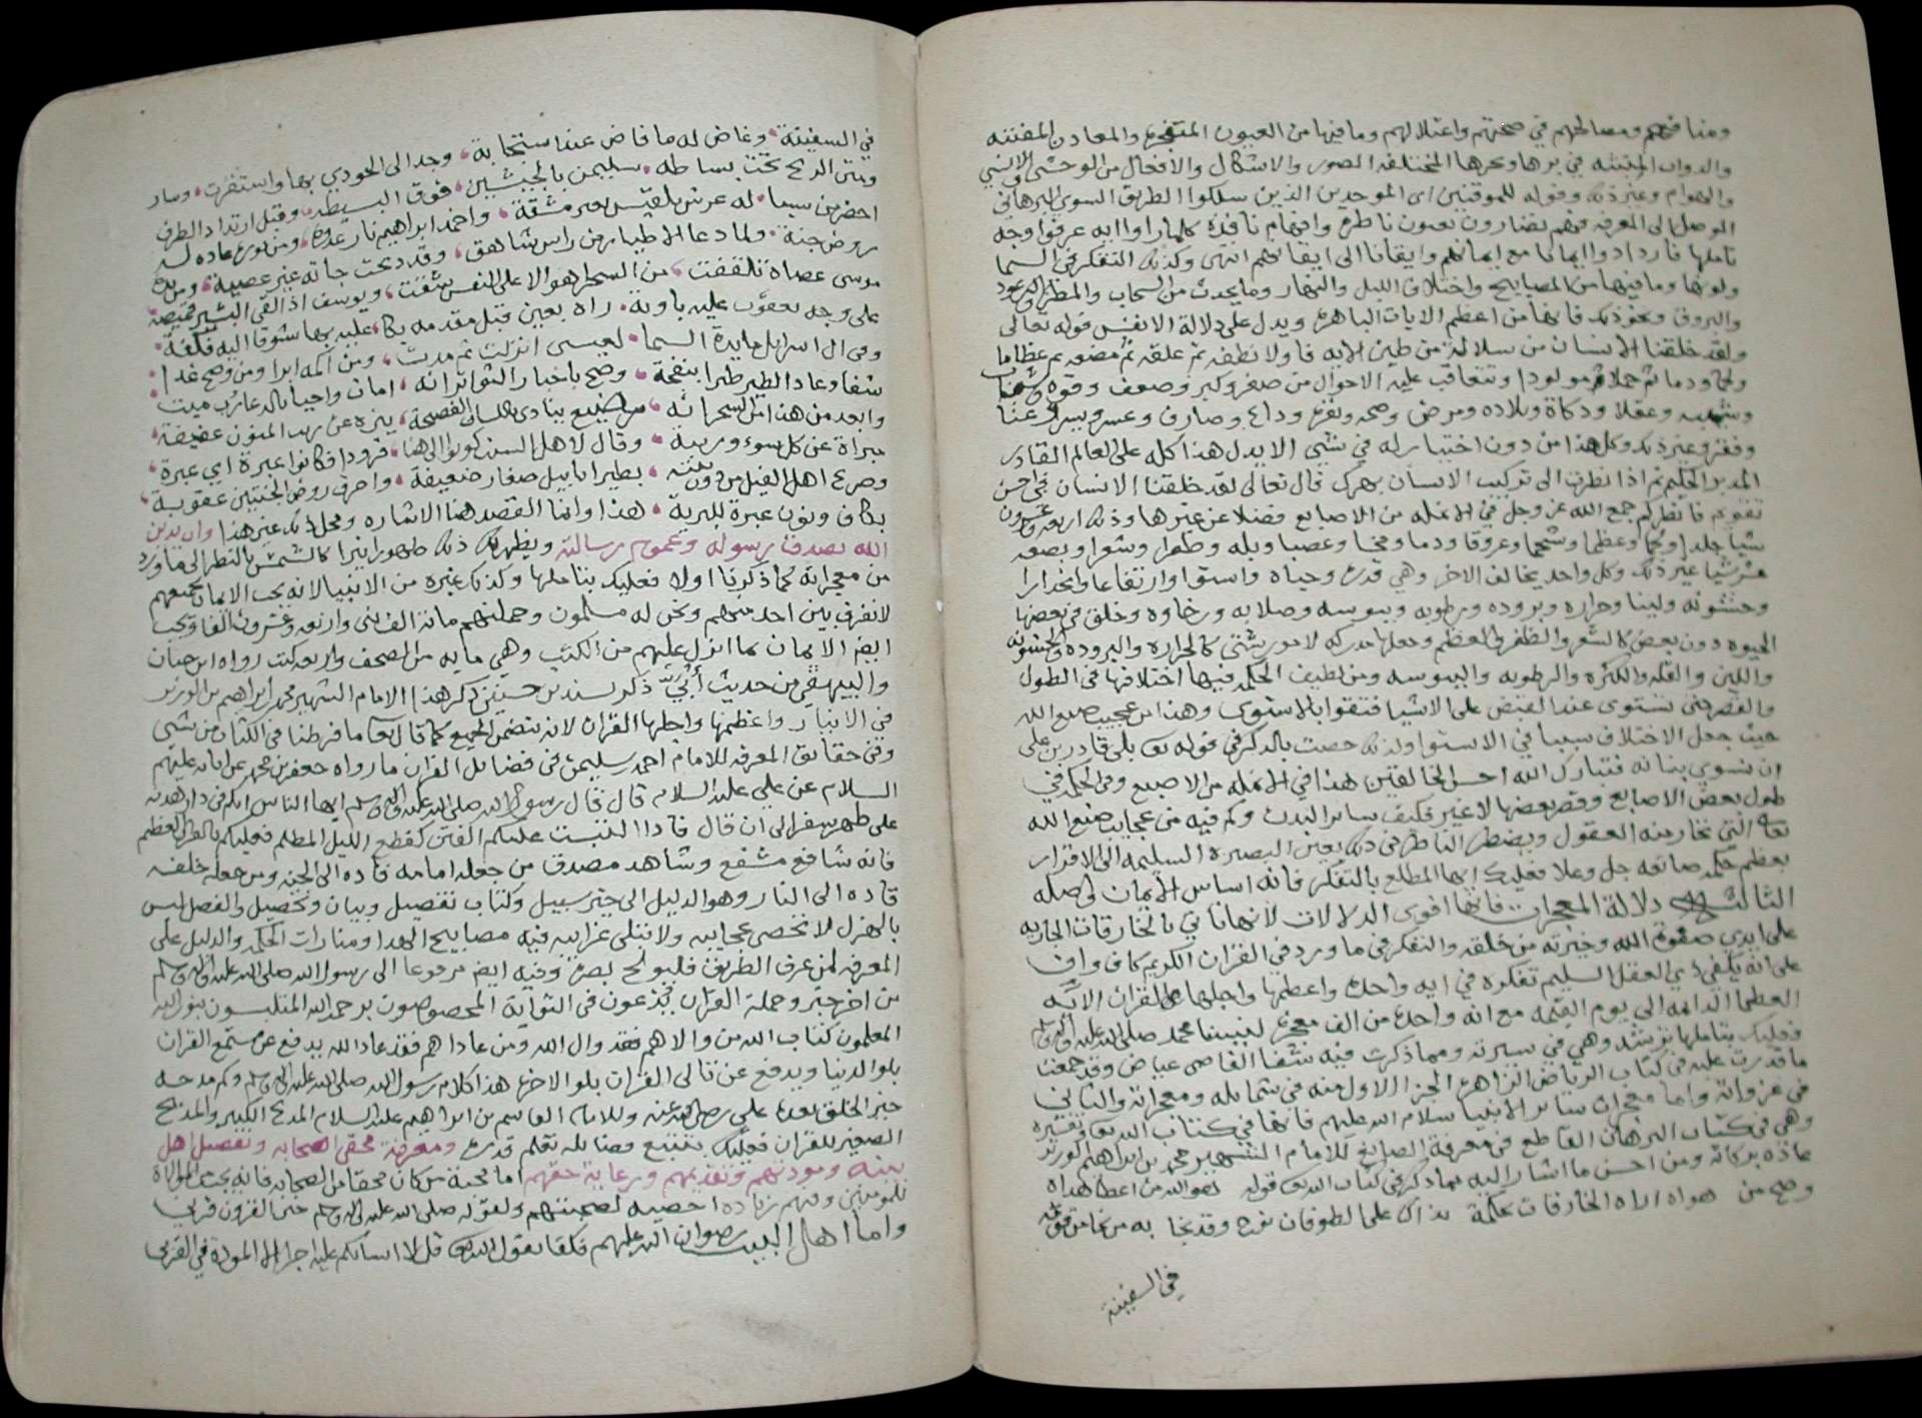 ومنافعهم ومصالحهم في صحتهم واعتلالهم وما فيها من العيون المتفجره والمعادن المفتنه
والدواب المنبثه في برها وبحرها المختلفه الصور والاشكال والافعال من الوحشي والانسي
والهوام وغير ذلك وقوله للموقنين اى الموحدين الذين سلكوا الطريق السوي البرهاني
الموصل الى المعرفه فهم نضارون بعيون ناظرة وافهام نافذة كلما راوا ايه عرفوا وجه
تاملها فازدادوا ايمانا مع ايمانهم وايقانا الى ايقانهم انتهى وكذلك التفكر في السما
ولونها وما فيها من المصابيح واختلاف الليل والنهار وما يحدث من السحاب والمطر والرعود
والبروق ونحو ذلك فانها من اعظم الايات الباهره ويدل على دلالة الانفس قوله تعالى
ولقد خلقنا الانسان من سلالة من طين الايه فاولا نطفه ثم علقه ثم مضغه ثم عظاما
ولحما ودما ثم حملا ثم مولودا وتتعاقب عليه الاحوال من صغر وكبر وضعف وقوه وشباب
وشيبه وعقلا وذكاة وبلاده ومرض وصحه وداع وصارف وعسر ويسر وغنا
وفقر وغير ذلك وكل هذا من دون اختيار له في شي الا يدل هذا كله على العالم القادر
المدبر الحكيم ثم اذا نظرت الى تركيب الانسان بهرك قال تعالى لقد خلقنا الانسان في احسن
تقويم فانظر كم جمع الله عز وجل في الانمله من الاصابع فضلا عن غيرها وذلك اربعه وعشرون
شيا جلدا ولحما وعظما وشحما وعروقا ودما ومخا وعصبا وبله وظفرا وشعرا وبضعه
عشر شيا غير ذلك وكل واحد يخالف الاخر وهي قدرة وحياه واستوا وارتفاعا وانحدارا
وخشونه ولينا وحراره وبروده ورطوبه ويبوسه وصلابه ورخاوه وخلق في بعضها
الحيوه دون بعض كالشعر والظفر والعظم وجعلها مدركه لامور شتى كالحراره والبروده والخشونه
واللين والقله والكثره والرطوبه واليبوسه ومن لطيف الحكمه فيها اختلافها في الطول
والقصر حتى تستوى عند القبض على الاشيا فتقوا بالاستوى وهذا من عجيب صنع الله
حيث جعل الاختلاف سببا في الاستوا ولذلك خصت بالذكر في قوله تعا بلى قادرين على
ان نسوي بنانه فتبارك الله احسن الخالقين هذا في الانمله من الاصبع وفي الحكمه في
طول بعض الاصابع وقصر بعضها لا غير فكيف سائر البدن وكم فيه من عجايب صنع الله
تعالى التي تحار منه العقول ويضطر الناظر في ذلك بعين البصيره السليمه الى الاقرار
بعظم حكمه صانعه جل وعلا فعليك ايها المطلع بالتفكر فانه اساس الايمان واصله
الثالثه دلالة المعجزات فانها اقوى الدلالات لانها تاتي بالخارقات الجاريه
على ايدي صفوة الله وخيرته من خلقه والتفكر في ما ورد في القران الكريم كاف واف
على انه يكفي ذي العقل السليم تفكره في ايه واحدة واعظمها واجلها القران الايه
العظما الدائمه الى يوم القيمه مع انه واحدة من الف معجزه لنبينا محمد صلى الله عليه واله وسلم
فعليك بتاملها ترشد وهي في سيرته ومما ذكرت فيه شفا القاضى عياض وقد جمعت
ما قدرت عليه في كتاب الرياض الزاهره الجزء الاول منه في شمايله ومعجزاته والثاني
في غزواته واما معجزات سائر الانبيا سلام الله عليهم فانها في كتاب الله تعا وتفسيره
وهي في كتاب البرهان القاطع في معرفة الصانع للامام الشهير محمد بن ابراهيم الوزير
عاذه بركاته ومن احسن ما اشار اليه مما ذكر في كتاب الله تعا قوله
وصح من هواه اراه الخارقات بحكمة طوفان نوح وقد نجا به من نجا من قومه
في السفينة
في السفينة وغاض له ما فاض عند استجابة وجد الى الجودي بها واستقرت وسار
ومتن الريح تحت بساطه سليمن بالجيشين فوق البسيطة وقبل ارتداد الطرف
احضر من سبا له عرش بلقيس بغير مشقة واخمد ابراهيم نار عدوه ومن نوره عاده له
روض جنة ولما دعا الاطيار من راس شاهق وقد ذبحت جاته غير عصية ومن يده
موسى عصاه تلقفت من السحر اهوالا على النفس شقت ويوسف اذ القى البشير قميصه
على وجه يعقوب عليه باوبة راه بعين قبل مقدمه بكا عليه بها شوقا اليه فكفة
وفي ال اسرايل مايدة السما لعيسى انزلت ثم مدت ومن اكمه ابرا ومن وضح غدا
شفا وعاد الطير طيرا بنفخة وصح باخبار التواتر انه امات واحيا بالدعا رب ميت
وابعد من هذا رضيع ينادى باللسان الفصيحة ينزه عن ريب المنون عفيفة
مبراة عن كل سوء وريبة وقال لاهل السبت كونوا الى هنا قرودا فكانوا عبرة اي عبرة
وصرع اهل الفيل من دون بيته بطير ابابيل صغار ضعيفة واحرق روض الجنتين عقوبة
بكاف ونون عبرة للبرية هذا وانما القصد هنا الاشاره ومحل ذلك غير هذا وان تدين
الله بصدق رسوله وعموم رسالته ويظهر لك ذلك ظهورا نيرا كالشمس بالنظر الى ما ورد
من معجزاته كما ذكرنا اولا فعليك بتاملها وكذلك غيره من الانبيا لانه يجب الايمان بجميعهم
لا نفرق بين احد منهم ونحن له مسلمون وجملتهم مائة الف نبي واربعه وعشرون الفا ويجب
ايضا الايمان بما انزل عليهم من الكتب وهي مايه من الصحف والاربعه كتب رواه ابن حبان
والبيهقي من حديث أُبَيّ ذكر لسند بن حسين ذكر هذا الامام الشهير محمد بن ابراهيم بن الوزير
في الايثار واعظمها واجلها القران لانه يتضمن الجميع كما قال تعا ما فرطنا في الكتاب من شي
وفي حقائق المعرفه للامام احمد بن سليمن في فضائل القران ما رواه جعفر بن محمد عن ابائه عليهم
السلام عن علي عليه السلام قال قال رسول الله صلى الله عليه واله وسلم ايها الناس انكم في دار هدنه
على ظهر سفر الى ان قال فاذا التبست عليكم الفتن كقطع الليل المظلم فعليكم بالقران العظيم
فانه شافع مشفع وشاهد مصدق من جعله امامه قاده الى الجنه ومن جعله خلفه
قاده الى النار وهو الدليل الى خير سبيل وكتاب تفصيل وبيان وتحصيل والفصل ليس
بالهزل لا تحصى عجايبه ولا تبلى غرايبه فيه مصابيح الهدا ومنارات الحكمه والدليل على
المعرفه لمن عرف الطريق فليولج بصره وفيه ايضا مرفوعا الى رسول الله صلى الله عليه واله وسلم
من اخر خبر وحملة القران المخصوصون برحمة الله الملبسون بنور الله
المعلمون كتاب الله من والاهم فقد وال الله ومن عاداهم فقد عاد الله يدفع عن مستمع القران
بلوا الدنيا ويدفع عن تالى القران بلوا الاخره هذا كلام رسول الله صلى الله عليه واله وسلم وكم مدحه
خير الخلق بعده علي رضي الله عنه وللامام القاسم بن ابراهيم عليه السلام المديح الكبير والمديح
الصغير للقران فعليك بتتبع فضائله تعلم قدره ومعرفة محقي الصحابه وتفضيل اهل
بيته ومودتهم وتقديمهم ورعاية حقهم اما محبة من كان محقا من الصحابه فانه يجب الموالاة
للمومنين وفيهم زياده اخصيه لصحبتهم ولقوله صلى الله عليه واله وسلم خير القرون قرني
واما اهل البيت رضوان الله عليهم فكفا بقول الله تعا قل لا اسالكم عليه اجرا الا المودة في القربى